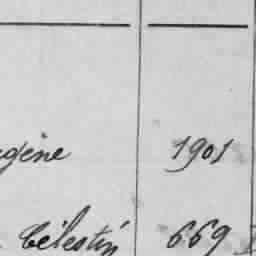 gène 1901
Célestin 669